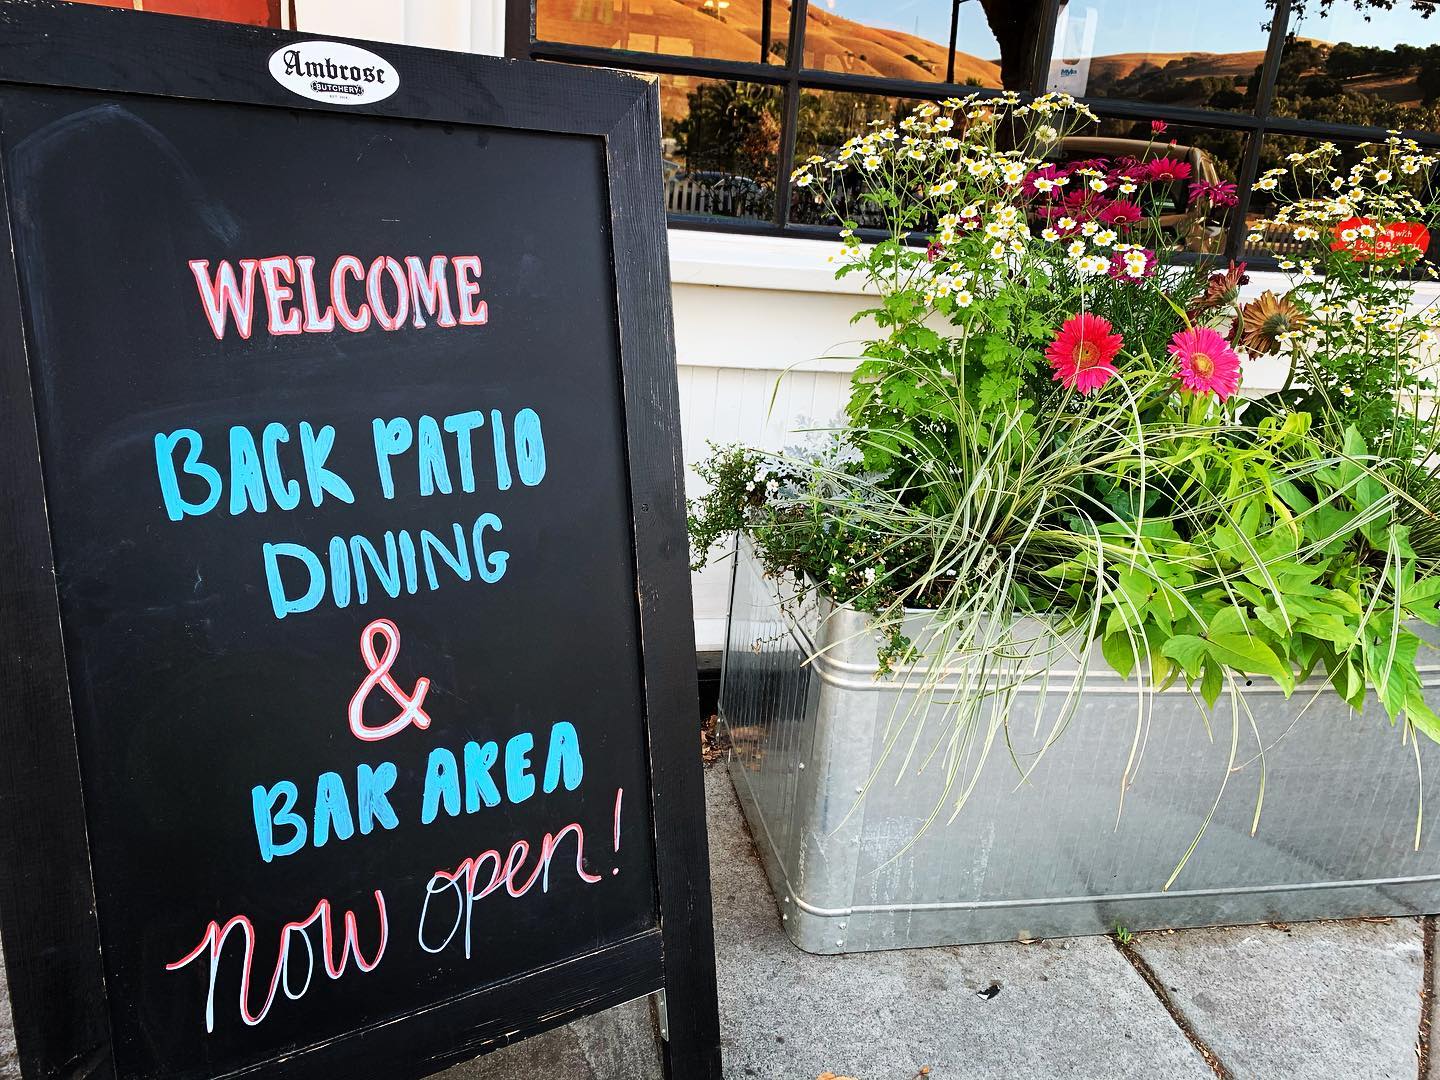 Ambrose
BUTCHERY
WELCOME
BACK PATIO
DINING
&
BAR AREA
now open!